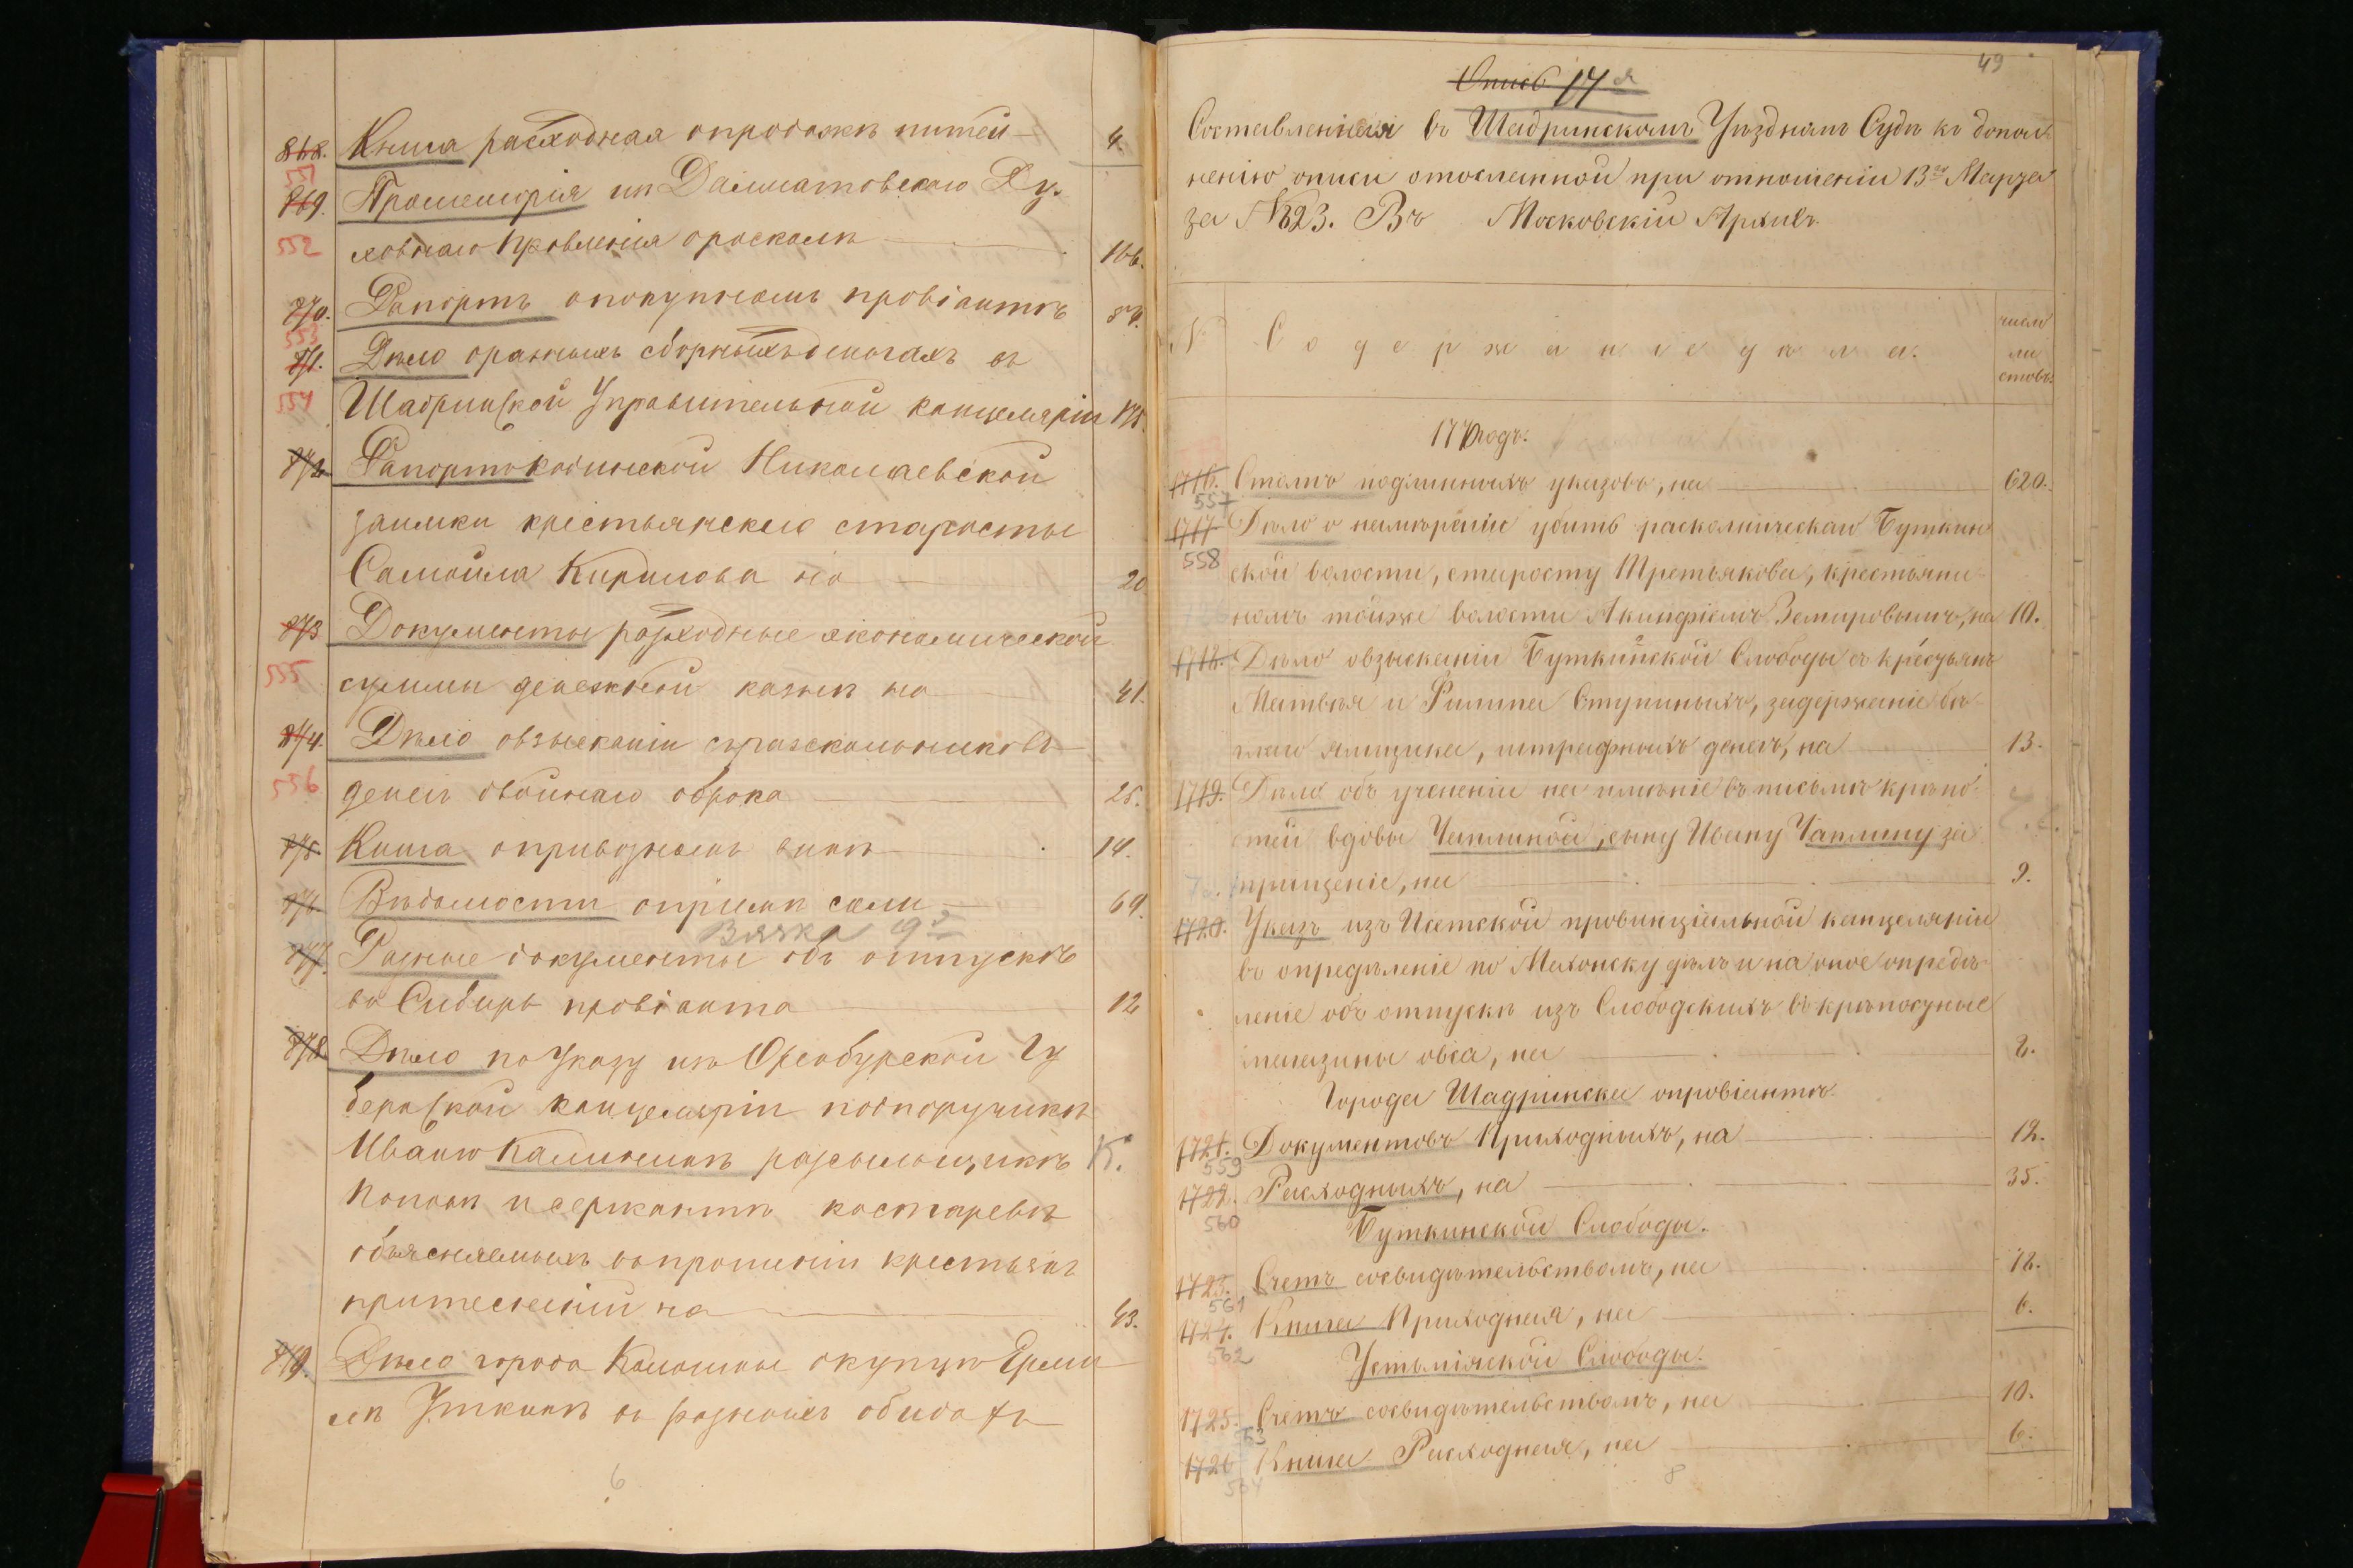 868. Книга расходная опродажѣ питей 4.
551
869. Промеморія изъ Далматовскаго Ду-
552 ховнаго правленія ораскол 166.
870. Рапортъ опокупномъ провіантѣ
553
871. Дѣло оразныхъ сборныхъ деньгахъ въ
554 Шадринской Управительной канцеляріи
872 Рапорты Николаевской
заимки крестьянскаго старосты
Самойла Кирилова на 20
873 Документы расходные экономической
555 суммы денежной казны на 41.
874. Дѣло овзысканіи съраскольниковъ
556 денегъ двойнаго оброка 25.
875. Книга опривозномъ винѣ 14.
876 Вѣдомости опріемѣ соли 69.
Вязка 9я
877. Разные документы объ отпускѣ
въ Сибирь провіанта 12
878 Дѣло по Указу изъ Оренбургской Гу
бернской канцеляріи подпоручикѣ
Иванѣ Калининѣ разсыльщикѣ К.
Поповѣ и сержантѣ костаревѣ
объясняемыхъ крестьянъ
притесненіи на 43.
879. Дѣло города купцу
Уткинѣ въ разныхъ обидахъ
6
49
Опись 17я
Составленная въ Шадринскомъ Уѣздномъ Судѣ къ допол-
ненію описи отосланной при отношеніи 13го Марта
за №823. Въ Московскій Архивъ.
№ Содержаніе дѣла. число
ли
стовъ.
1770годъ.
1716. Столпъ подлинныхъ указовъ, на 620.
557
1717 Дѣло о намѣреніи убить раскольническаго Буткин
558 ской волости, старосту Третьякова, крестьяни-
номъ тойже волости Акинфіемъ Земировымъ, на 10.
1718. Дѣло овзысканіи Буткинской Слободы съ крестьянъ
Матвѣя и Филипа Ступиныхъ, задержаніе бѣ-
ямщика, штрафныхъ денегъ, на 13.
1719. Дѣло объ ученении на имѣніе въ писмѣ крѣпо-
стей вдовы Чаплиной, сыну Ивану Чаплину за
прищеніе, на 9.
1720. Указъ изъ Исетской провинціальной канцеляріи
въ опредѣленіе по Мехонску дѣлъ и на оное опредѣ-
леніе объ отпускѣ изъ Слободскихъ въ крѣпосные
магазины овса, на 2.
Города Шадринска опровіантѣ.
1721. Документовъ Приходныхъ, на 12.
559
1722. Расходныхъ, на 35.
560
Буткинской Слободы.
1723. Счетъ сосвидѣтельствомъ, на 12.
561
1724. Книга Приходная, на 6.
562
Устьміяской Слободы.
1725. Счетъ сосвидѣтельствомъ, на 10.
63
1726 Книга Расходная, на 6.
564 8